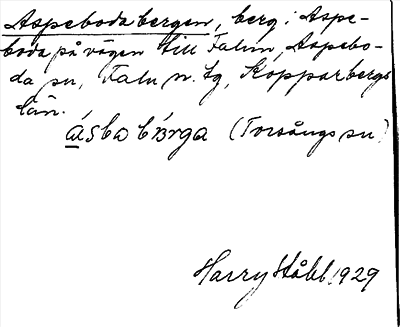 Aspebodabergen, berg i Aspe-
boda på vägen till Falun, Aspebo-
da sn, Falu n. tg, Kopparbergs
län.
ásba bärga (Torsångs sn)
Harry Ståhl 1929